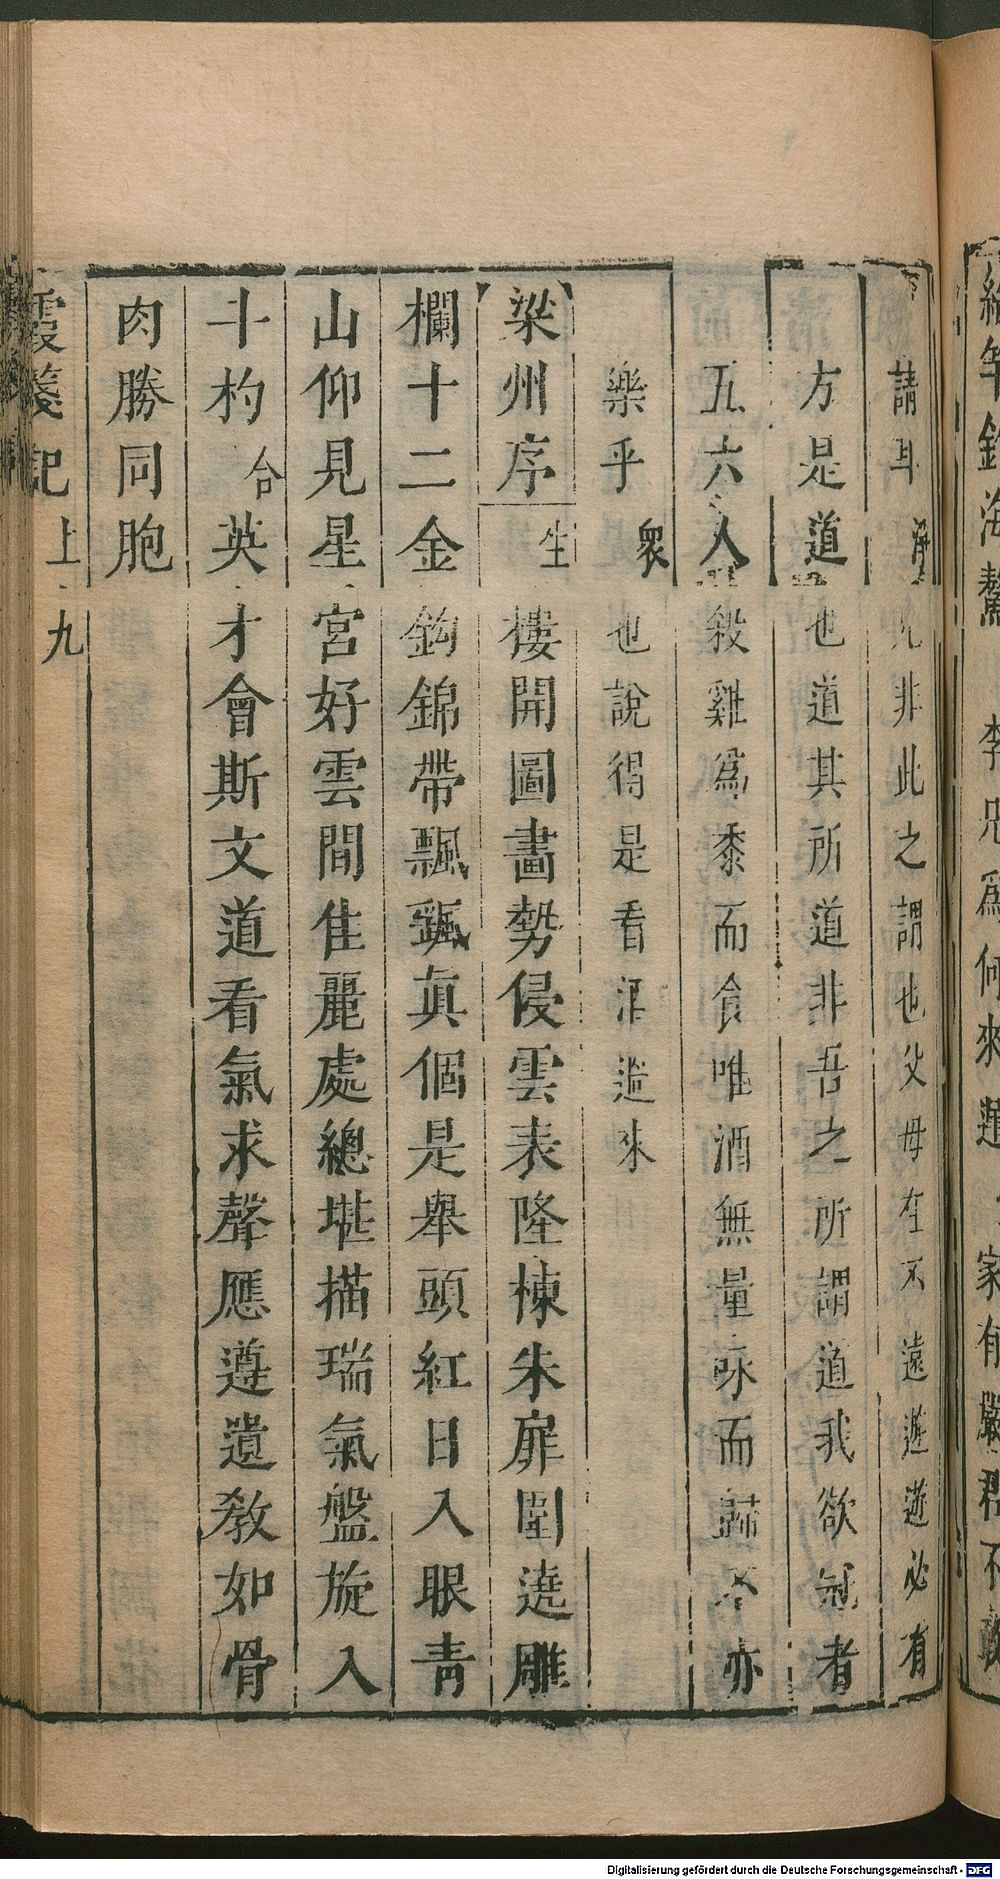 請耳 淨 兄非此之謂也父母在不遠遊遊必有
方是道也道其所道非吾之所謂道我欲冠者
五六人殺雞爲黍而食唯酒無量咏而歸不亦
樂乎 衆 也說得是看酒過來
梁州序 生 樓開圖畫勢侵雲表隆棟朱扉圍遶雕
欄十二金鈎錦帶飄飄真個是舉頭紅日入眼青
山仰見星宮好雲間佳麗處總堪描瑞氣盤旋入
斗杓 合 英才會斯文道看氣求聲應遵遺敎如骨
肉勝同胞
霞箋記 上 九
李兄爲何來遲 家有嚴君不敢
Digitalisierung gefördert durch die Deutsche Forschungsgemeinschaft - DFG